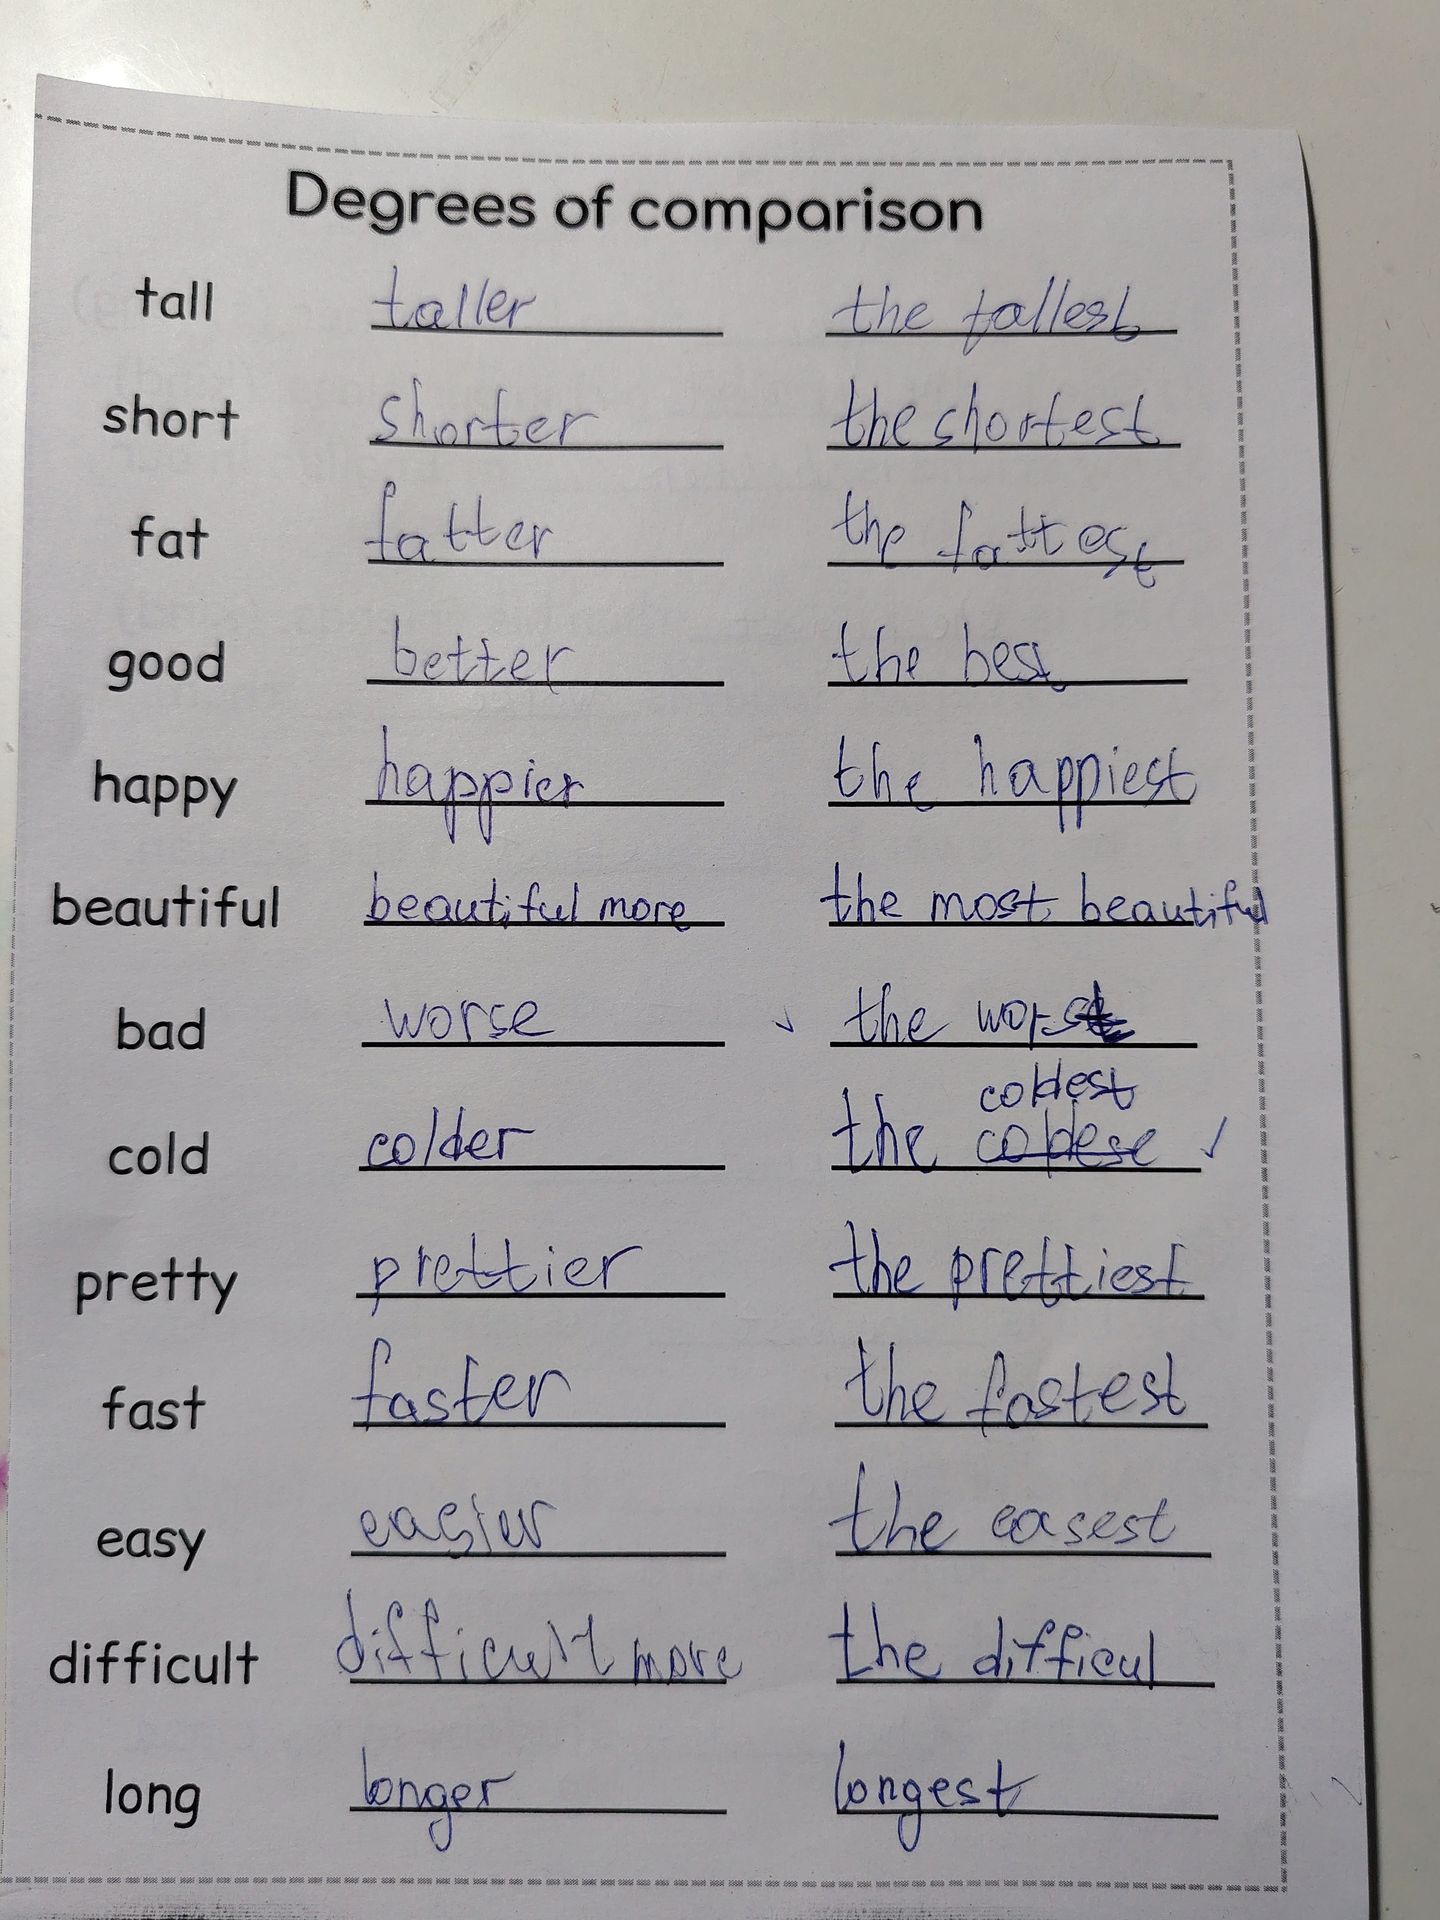 Degrees of comparison
tall taller the tallest
short shorter the shortest
fat fatter the fattest
good better the best
happy happier the happiest
beautiful beautiful more the most beautiful
bad worse the worst
coldest
cold colder the coldese
pretty prettier the prettiest
fast faster the fastest
easy easier the easest
difficult difficult more the difficul
long longer longest